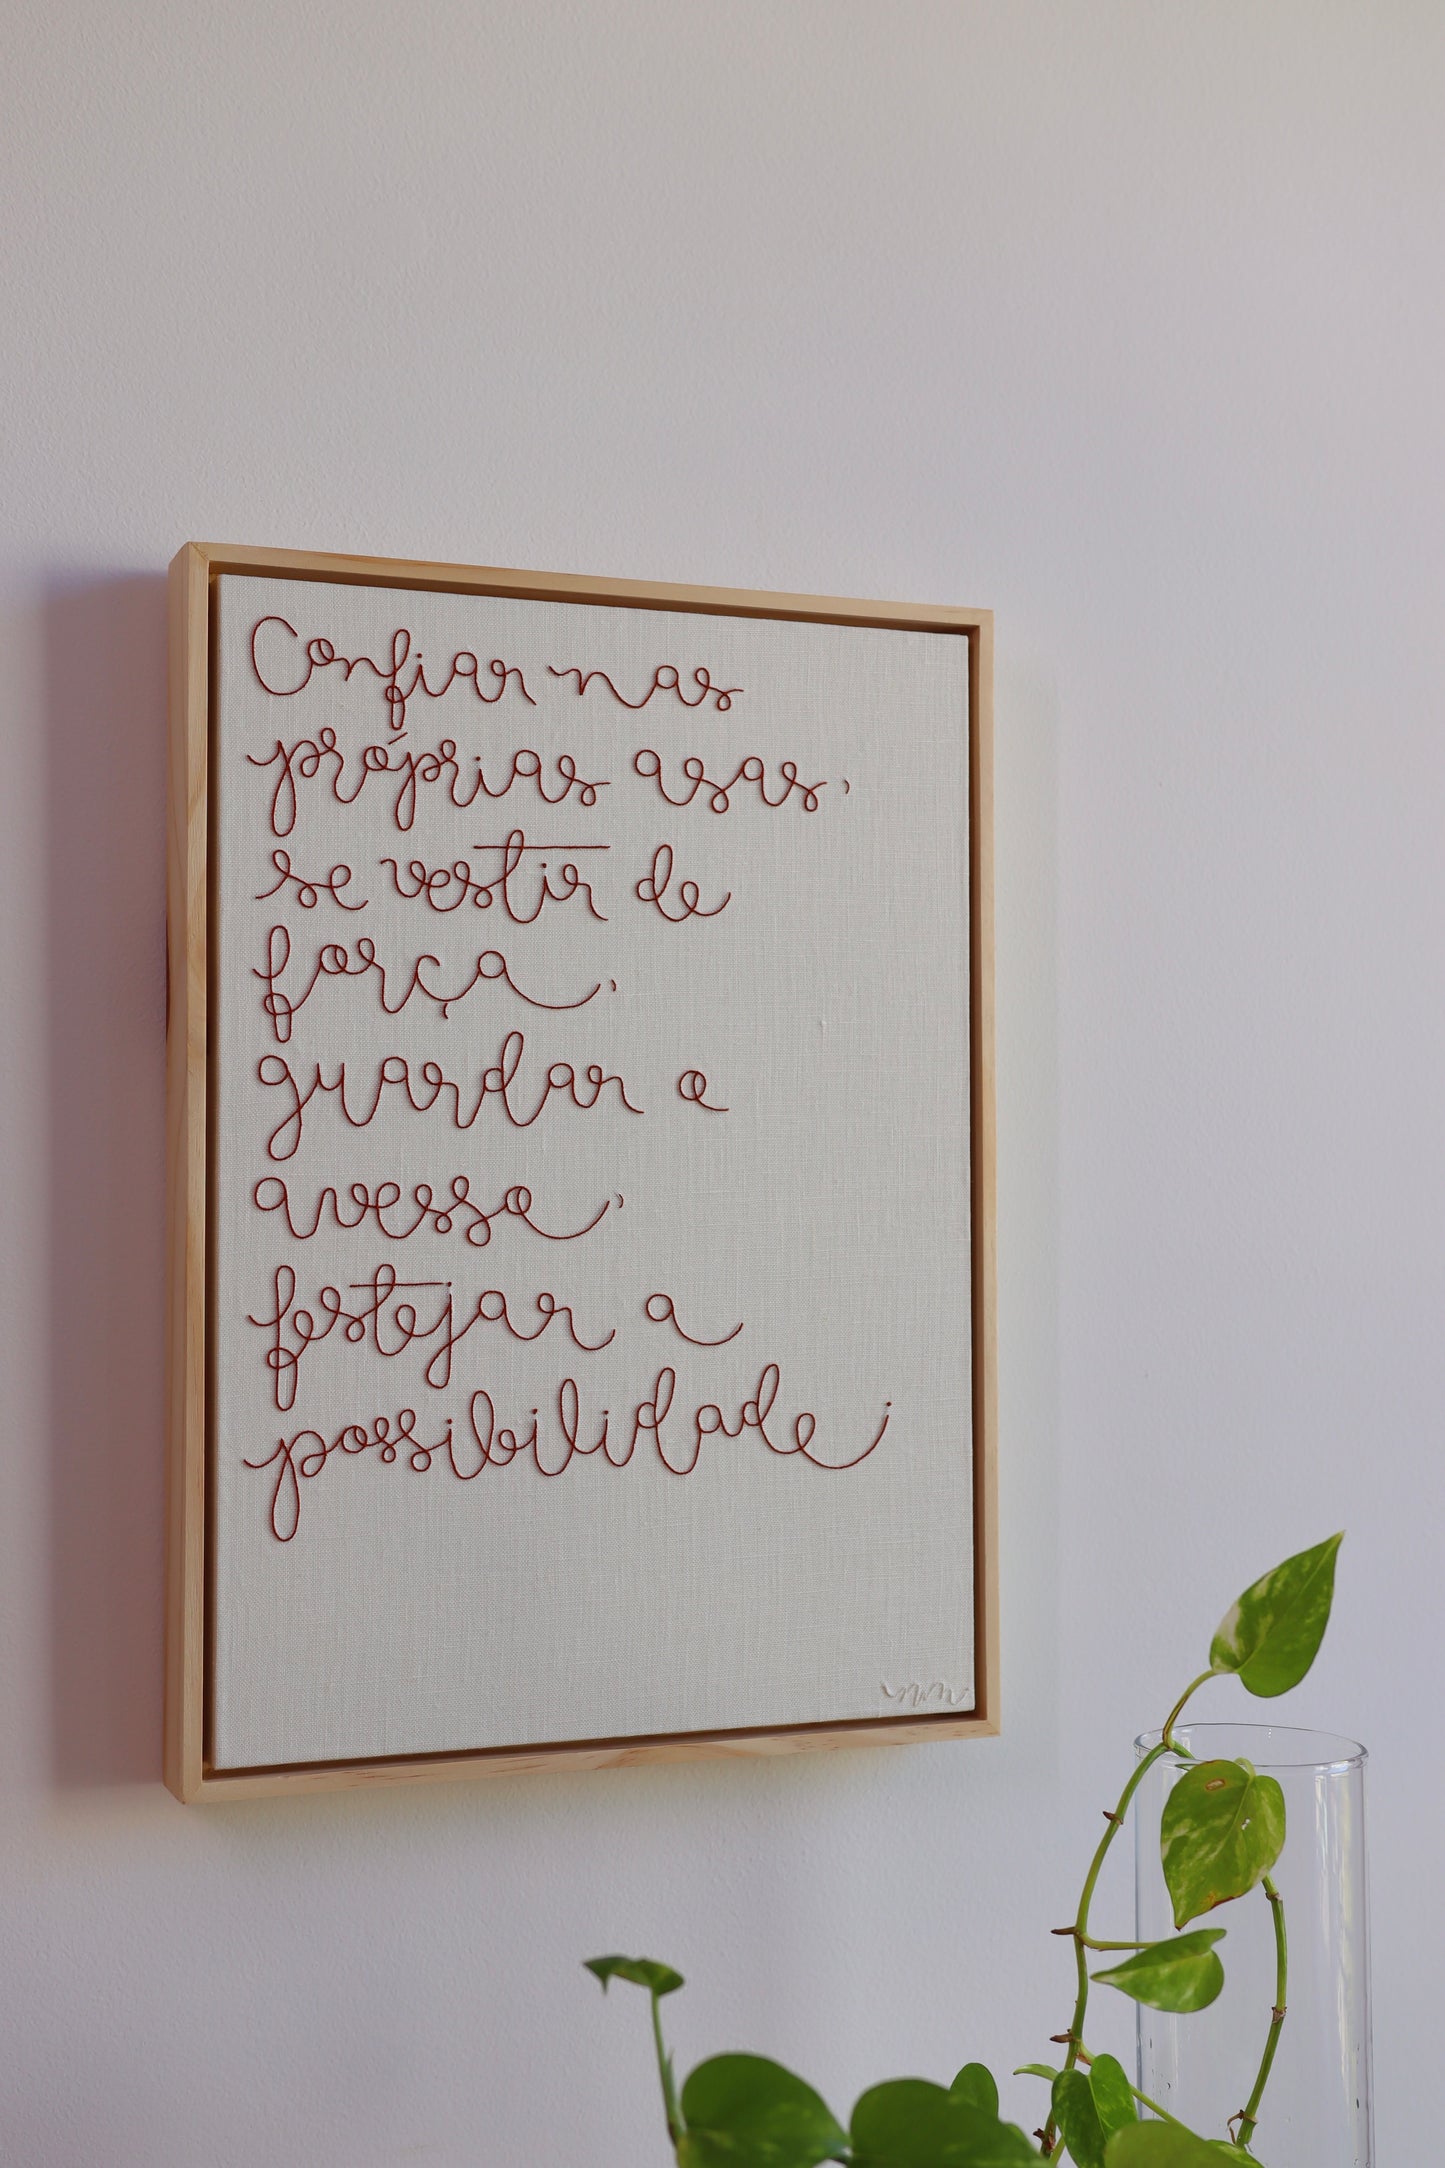 Confiar nas
próprias asas,
se vestir de
força,
guardar o
avesso,
festejar a
possibilidade